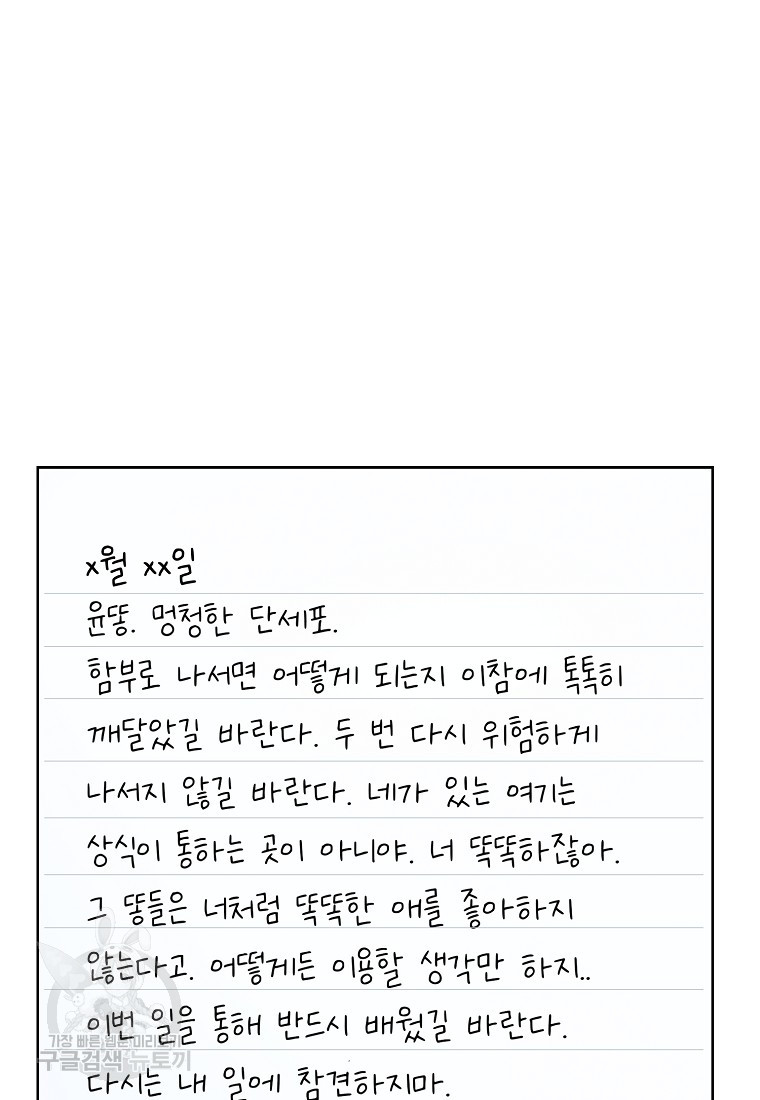 x월 xx일
윤똥. 멍청한 단세포.
함부로 나서면 어떻게 되는지 이참에 톡톡히
깨달았길 바란다. 두 번 다시 위험하게
나서지 않길 바란다. 네가 있는 여기는
상식이 통하는 곳이 아니야. 너 똑똑하잖아.
그 똥들은 너처럼 똑똑한 애를 좋아하지
않는다고. 어떻게든 이용할 생각만 하지..
이번 일을 통해 반드시 배웠길 바란다.
가장 빠른 웹툰 미리보기
구글검색 뉴토끼
다시는 내 일에 참견하지마.